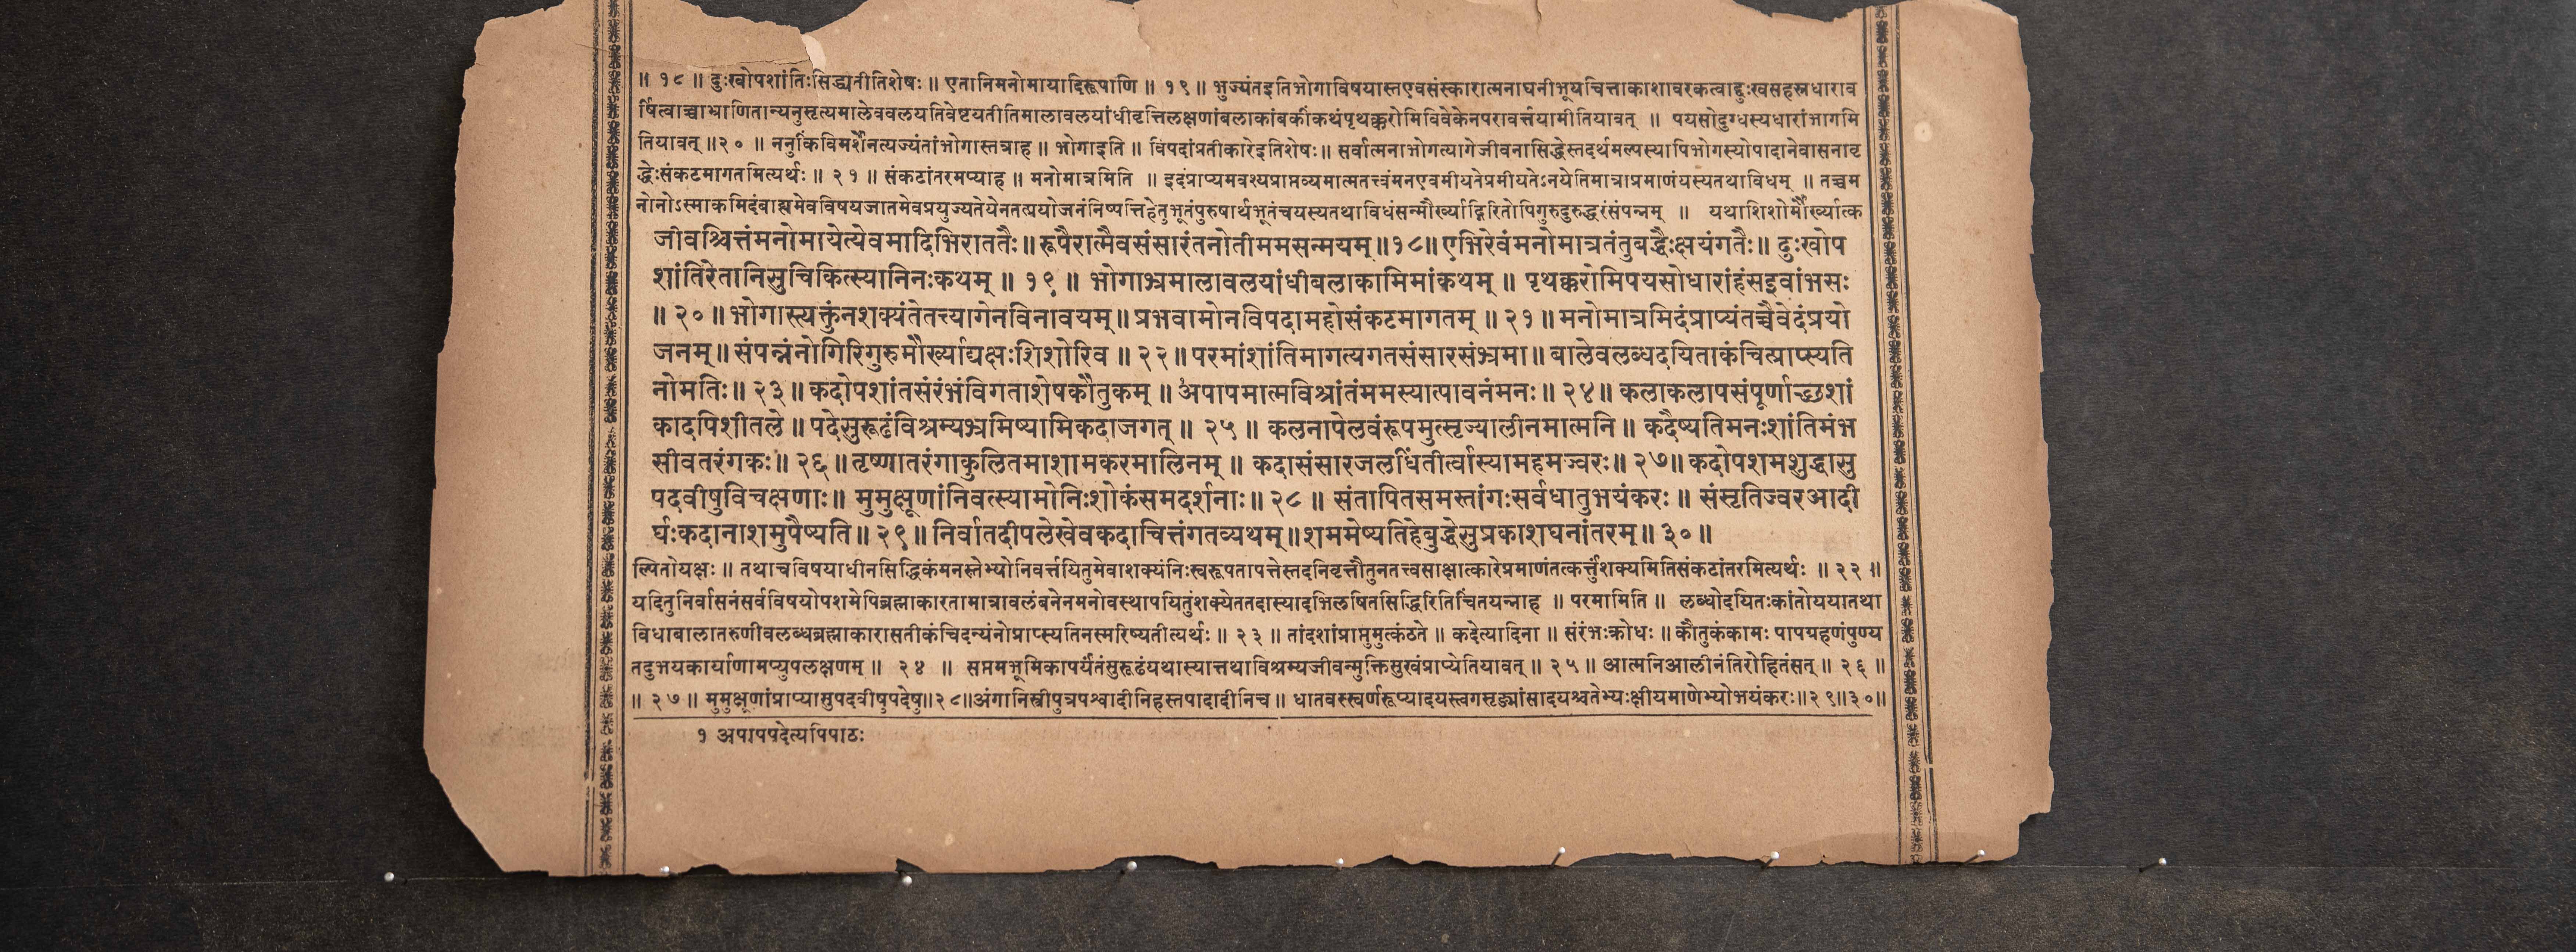 ॥ १८ ॥ दुःखोपशांतिःसिद्ध्यतीतिशेषः ॥ एतानिमनोमायादिरूपाणि ॥ १९ ॥ भुज्यंतइतिभोगाविषयास्तएवसंस्कारात्मनाघनीभूयचित्ताकाशावरकत्वाद्दुःखसहस्रधाराव
र्षित्वाच्चाभ्राणितान्यनुसृत्यमालेववलयतिवेष्टयतीतिमालावलयांधीवृत्तिलक्षणांबलाकांबकींकथंपृथक्करोमिविवेकेनपरावर्त्तयामीतियावत् ॥ पयसोदुग्धस्यधारांभागमि
तियावत् ॥२० ॥ ननुकिंविमर्शेनत्यज्यंतांभोगास्तत्राह ॥ भोगाइति ॥ विपदांप्रतीकारेइतिशेषः॥ सर्वात्मनाभोगत्यागेजीवनासिद्धेस्तदर्थमल्पस्यापिभोगस्योपादानेवासनावृ
द्धेःसंकटमागतमित्यर्थः ॥ २१ ॥ संकटांतरमप्याह ॥ मनोमात्रमिति ॥ इदंप्राप्यमवश्यप्राप्तव्यमात्मतत्त्वंमनएवमीयतेप्रमीयतेऽनयेतिमात्राप्रमाणंयस्यतथाविधम् ॥ तच्चम
नोनोऽस्माकमिदंबाह्यमेवविषयजातमेवप्रयुज्यतेयेनतत्प्रयोजनंनिष्पत्तिहेतुभूतंपुरुषार्थभूतंचयस्यतथाविधंसन्मौर्ख्याद्गिरितोपिगुरुदुरुद्धरंसंपन्नम् ॥ यथाशिशोर्मौर्ख्यात्क
जीवश्चित्तंमनोमायेत्येवमादिभिराततैः॥ रूपैरात्मैवसंसारंतनोतीममसन्मयम्॥१८॥ एभिरेवंमनोमात्रतंतुबद्धैःक्षयंगतैः॥ दुःखोप
शांतिरेतानिसुचिकित्स्यानिनःकथम् ॥ १९ ॥ भोगाभ्रमालावलयांधीबलाकामिमांकथम् ॥ पृथक्करोमिपयसोधारांहंसइवांभसः
॥ २० ॥ भोगास्त्यक्तुंनशक्यंतेतत्त्यागेनविनावयम्॥ प्रभवामोनविपदामहोसंकटमागतम् ॥ २१ ॥ मनोमात्रमिदंप्राप्यंतच्चैवेदंप्रयो
जनम्॥ संपन्नंनोगिरिगुरुमौर्ख्याद्यक्षःशिशोरिव ॥ २२॥ परमांशांतिमागत्यगतसंसारसंभ्रमा॥ बालेवलब्धदयिताकंचित्प्राप्स्यति
नोमतिः॥ २३॥ कदोपशांतसंरंभंविगताशेषकौतुकम् ॥ अ१पापमात्मविश्रांतंममस्यात्पावनंमनः॥ २४॥ कलाकलापसंपूर्णाच्छशां
कादपिशीतले ॥ पदेसुरूढंविश्रम्यभ्रमिष्यामिकदाजगत् ॥ २५ ॥ कलनापेलवंरूपमुत्सृज्यालीनमात्मनि॥ कदैष्यतिमनःशांतिमंभ
सीवतरंगकः॥ २६ ॥ तृष्णातरंगाकुलितमाशामकरमालिनम् ॥ कदासंसारजलधिंतीर्त्वास्यामहमज्वरः॥ २७॥ कदोपशमशुद्धासु
पदवीषुविचक्षणाः॥ मुमुक्षूणांनिवत्स्यामोनिःशोकंसमदर्शनाः॥ २८ ॥ संतापितसमस्तांगःसर्वधातुभयंकरः ॥ संसृतिज्वरआदी
र्घःकदानाशमुपैष्यति॥ २९॥ निर्वातदीपलेखेवकदाचित्तंगतव्यथम्॥शममेष्यतिहेबुद्धेसुप्रकाशघनांतरम्॥ ३०॥
ल्पितोयक्षः ॥ तथाचविषयाधीनसिद्धिकंमनस्तेभ्योनिवर्त्तयितुमेवाशक्यंनिःस्वरूपतापत्तेस्तदनिवृत्तौतुनतत्त्वसाक्षात्कारेप्रमाणंतत्कर्त्तुंशक्यमितिसंकटांतरमित्यर्थः ॥ २२ ॥
यदितुनिर्वासनंसर्वविषयोपशमेपिब्रह्माकारतामात्रावलंबनेनमनोवस्थापयितुंशक्येततदास्यादभिलषितसिद्धिरितिचिंतयन्नाह ॥ परमामिति ॥ लब्धोदयितःकांतोययातथा
विधाबालातरुणीवलब्धब्रह्माकारासतीकंचिदन्यंनोप्राप्स्यतिनस्मरिष्यतीत्यर्थः ॥ २३ ॥ तांदशांप्राप्तुमुत्कंठते ॥ कदेत्यादिना ॥ संरंभःक्रोधः ॥ कौतुकंकामः पापग्रहणंपुण्य
तदुभयकार्याणामप्युपलक्षणम् ॥ २४ ॥ सप्तमभूमिकापर्यंतंसुरूढंयथास्यात्तथाविश्रम्यजीवन्मुक्तिसुखंप्राप्येतियावत् ॥ २५ ॥ आत्मनिआलीनंतिरोहितंसत् ॥ २६ ॥
॥ २७ ॥ मुमुक्षूणांप्राप्यासुपदवीषुपदेषु॥२८॥अंगानिस्त्रीपुत्रपश्वादीनिहस्तपादादीनिच ॥ धातवस्स्वर्णरूप्यादयस्त्वगसृङ्मांसादयश्चतेभ्यःक्षीयमाणेभ्योभयंकरः॥२९॥३०॥
१ अपापपदेत्यपिपाठः